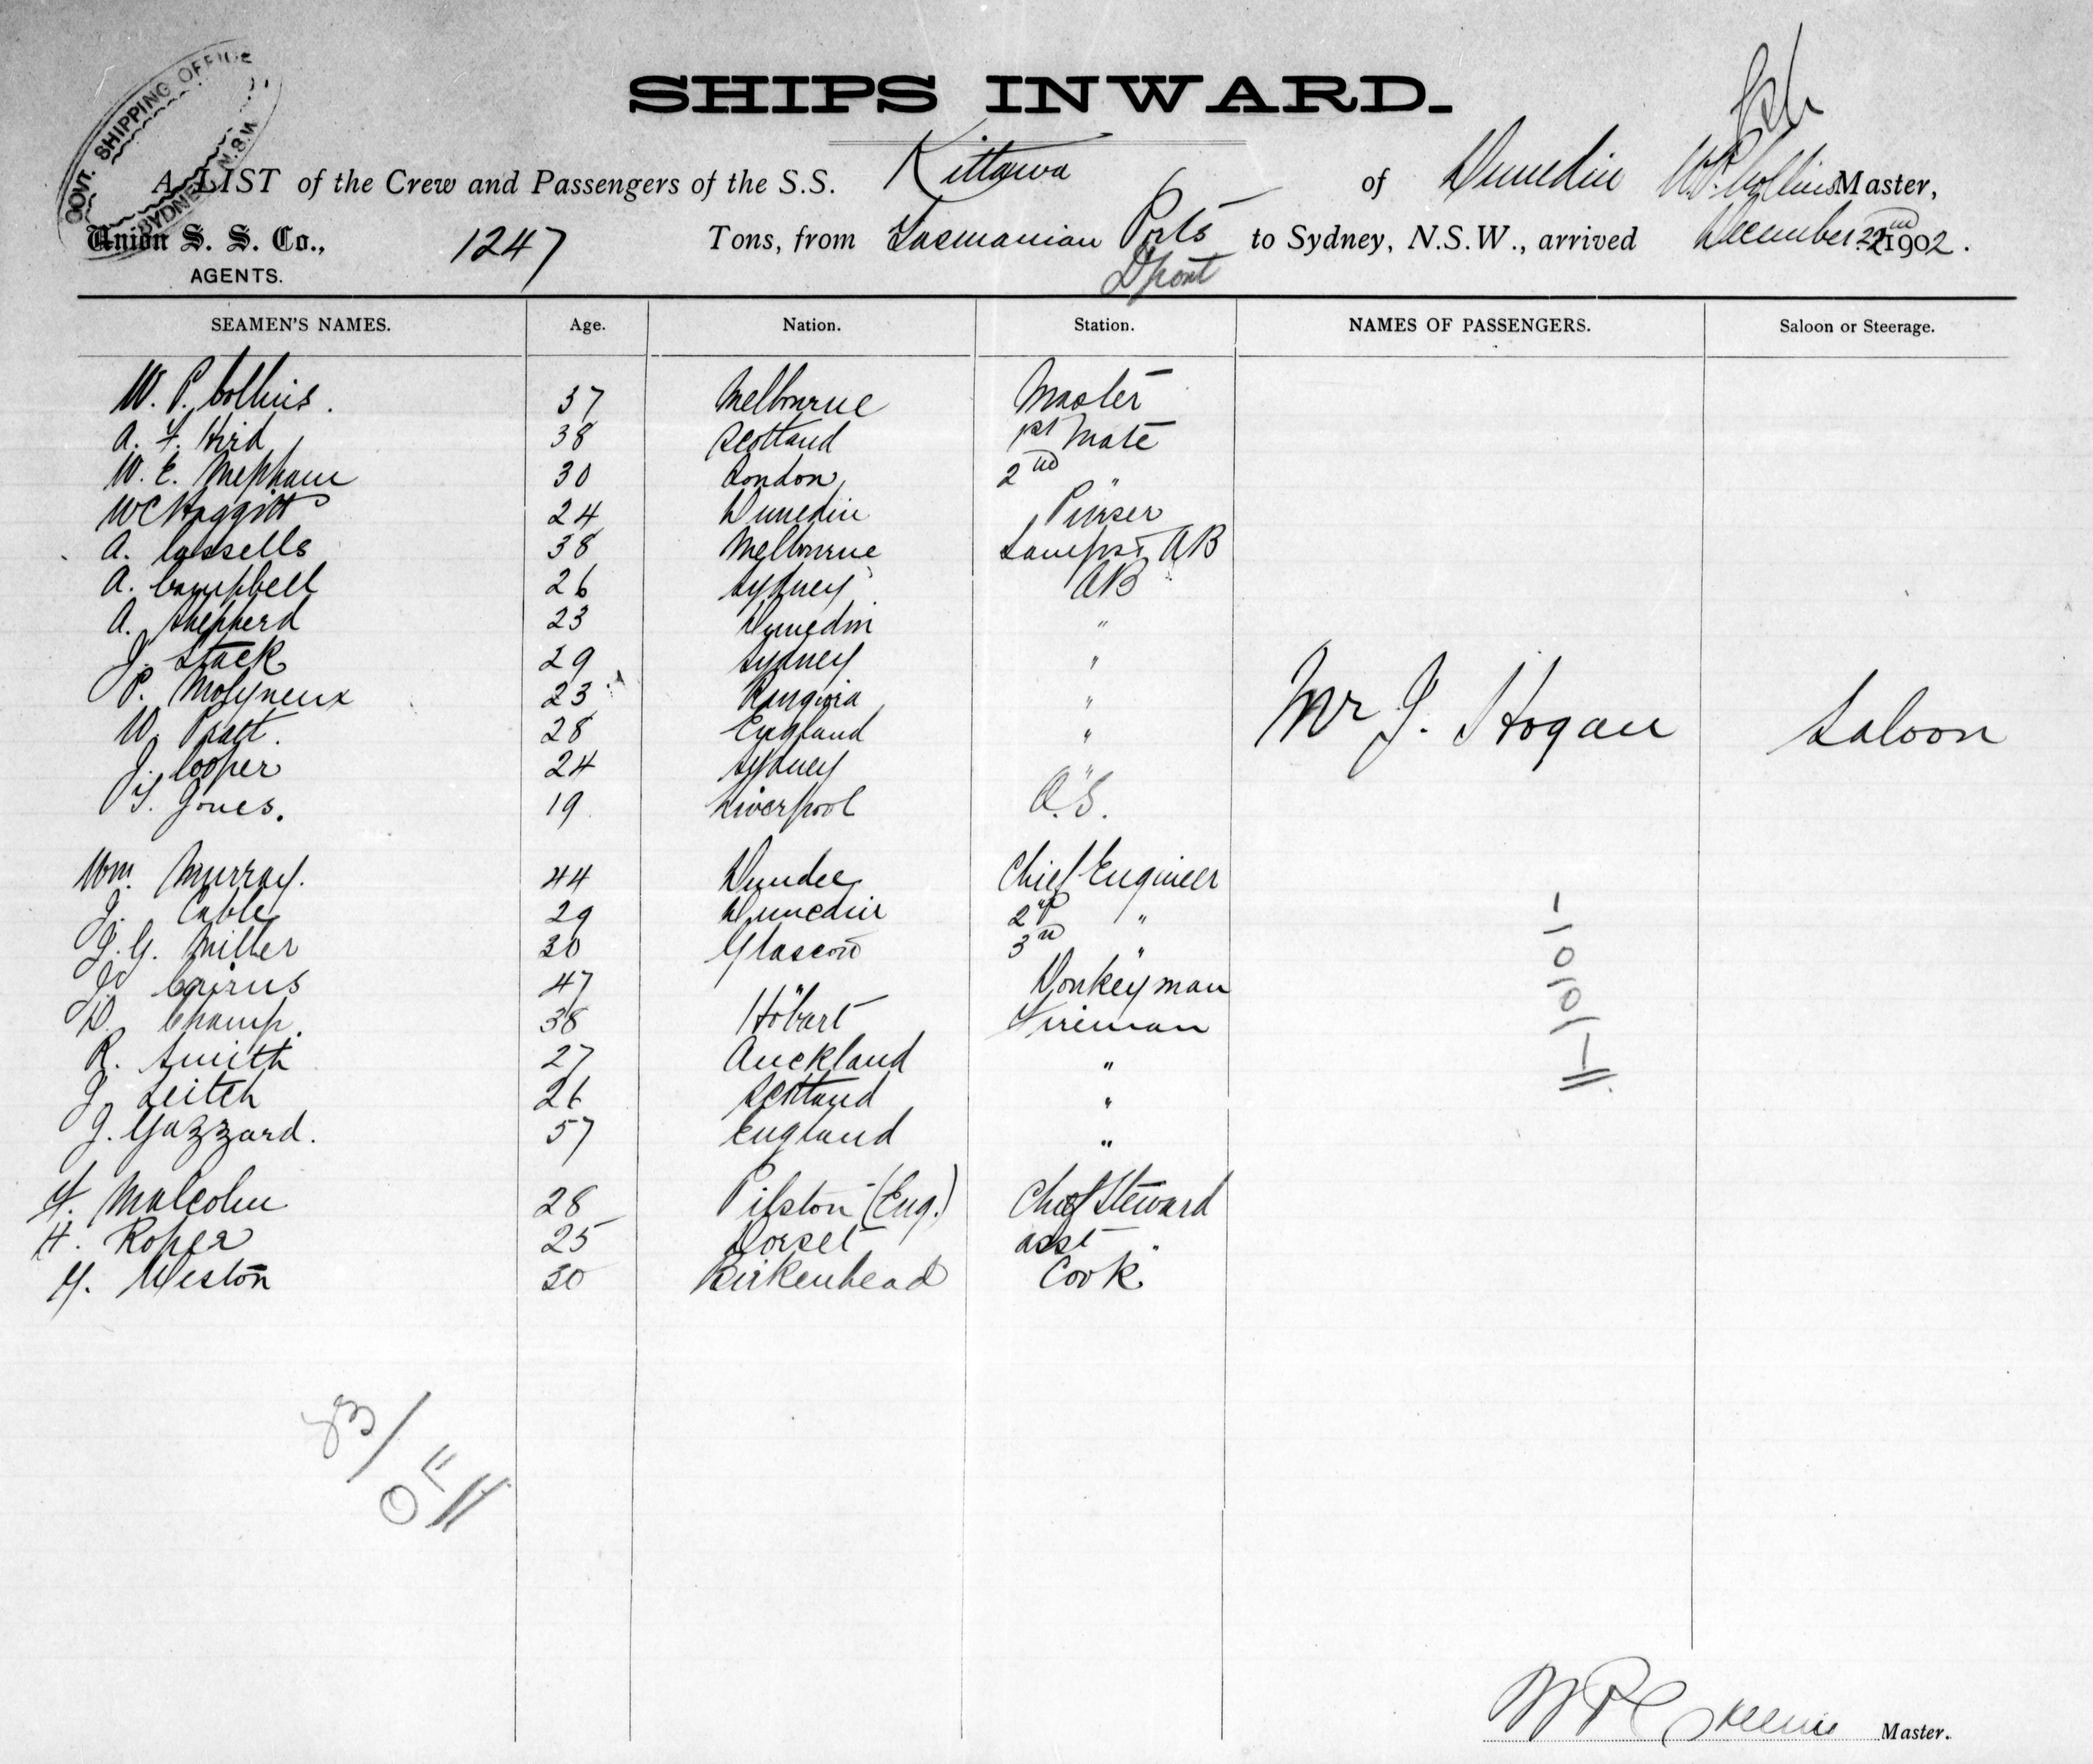 GOVT. SHIPPING OFFICE
SYDNEY N.S.W.
SHIPS INWARD.
A LIST of the Crew and Passengers of the S.S. Kittawa of Dunedin W. P. Collins Master,
Union S. S. Co., 1247 Tons, from Tasmanian Ports to Sydney, N.S.W., arrived December 22nd 1902.
AGENTS. Dport
SEAMEN'S NAMES. Age. Nation. Station. NAMES OF PASSENGERS. Saloon or Steerage.
W. P. Collins. 37 Melbourne Master
A. F. Hird 38 Scotland 1st Mate
W. E. Mepham 30 London 2nd "
W C Haggitt 24 Dunedin Purser
A. Cassells 38 Melbourne Lamps & AB
A. Campbell 26 Sydney AB
A. Shepherd 23 Dunedin "
J. Stack 29 Sydney "
P. Molyneux 23 Rangiora "
W. Pratt. 28 England " Mr J. Hogan Saloon
J. Cooper 24 Sydney "
T. Jones. 19 Liverpool O.S.
Wm. Murray. 44 Dundee Chief Engineer
J. Cable 29 Dunedin 2nd "
J. G. Miller 30 Glascow 3rd "
J. Cairns 47 " Donkeyman
D. Champ. 38 Hobart Fireman
R. Smith 27 Auckland "
J. Leitch 26 Scotland "
J. Gazzard. 57 England "
F. Malcolm 28 Pilston (Eng.) Chief Steward
H. Roper 25 Dorset asst "
G. Weston 30 Birkenhead Cook
W P Collins Master.